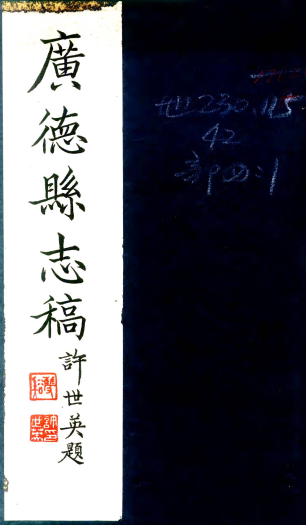 廣德縣志稿
許世英題
世230.115
42
部四:1